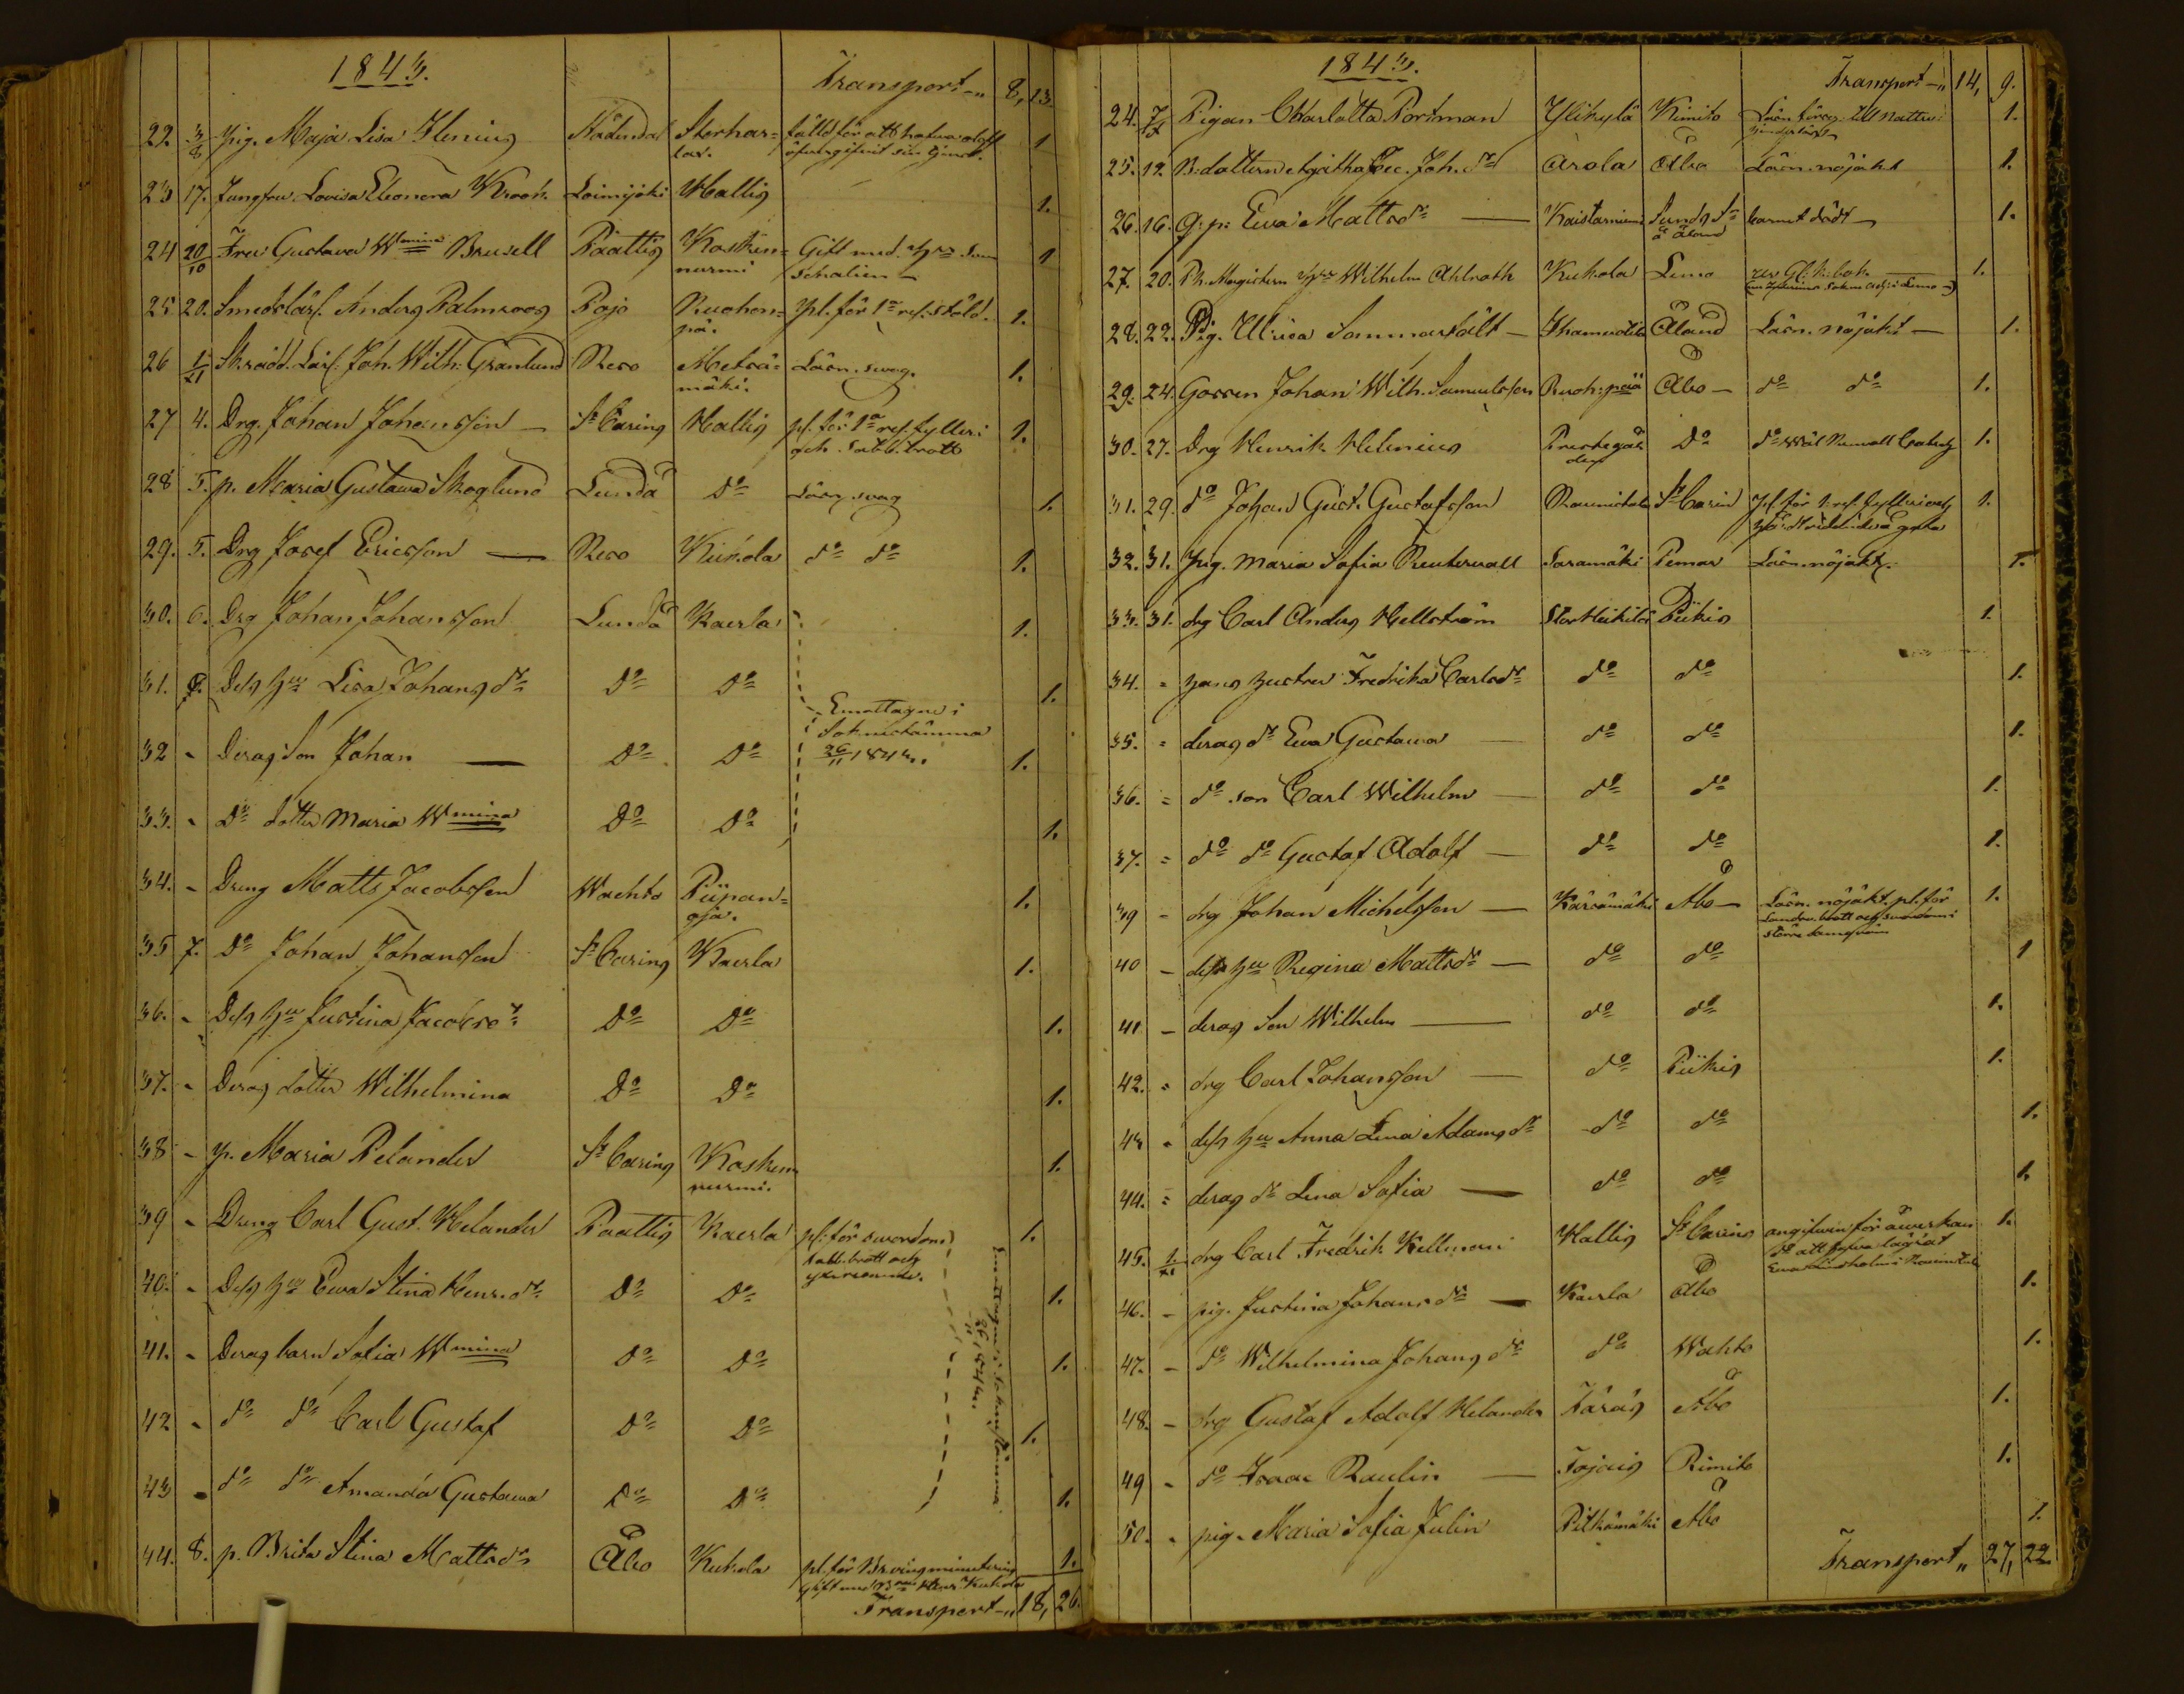 1843.
Transport — 8, 13.
22. 3/8 pig. Maja Lisa Henius Nådendal Storhar= fälld för att hafva olofl. 1
lax. öfvergifvit sin tjenst.
23 17. Jungfru Lovisa Eleonora Krook Loimijoki Hallis 1.
24 20/10 Fru Gustava Wmina Brusell Paattis Kosken= Gift med 1
nurmi
25 20. Smedslärl. Anders Palmroos Pojo Ruohon= pl. för 1a res. stöld. 1.
pä.
26 1/XI Skrädd. Lärl. Joh. Wilh. Granlund Reso Metsä= Läsn. svag. 1.
mäki.
27 4. Drg. Johan Johansson — St Carins Hallis pl. för 1a res. fylleri 1.
och sabb. brott
28 5. p. Maria Gustava Skoglund Lundå Do Läsn. svag 1.
29. 5. Drg Josef Ericsson — Reso Kukola do do 1.
30. 6. Drg Johan Johansson Lundå Kaerla 1.
31. 6. Dess hu Lisa Johans dr Do Do 1.
Emottagne i
Soknestämma
26/11 1843.
32 - Deras Son Johan — Do Do 1.
33. - Do dotter Maria Wmina Do Do 1.
34. - Dreng Matts Jacobsson Wachto Piipan= 1.
oja.
35 7. Do Johan Johansson St Carins Kaerla 1.
36. - Dess hu Justina Jacobs dr Do Do 1.
37. - Deras dotter Wilhelmina Do Do 1.
38 - p. Maria Pelander St Carins Kosken 1.
nurmi.
39 - Dreng Carl Gust. Helander Paattis Kaerla pl. för svordom 1.
sabb. brott och
40. - Dess hu Eva Stina Henr. dr Do Do 1.
Emottagne i Sokne stämma
26/11 1843.
41. - Deras barn Sofia Wmina Do Do 1.
42 - do do Carl Gustaf Do Do 1.
43 - do do Amanda Gustava Do Do 1.
44. 8. p. Brita Stina Mattsdr Åbo Kukola pl. för 1.
gift med Kukola
Transport — 18, 26.
1843.
Transport — 14, 9.
24. 7/X Pigan Charlotta Portman Ylikylä Kimito Läsn. förseg. till Nattv. 1.
25. 12. B. dottern Agatha Joh. dr Arola Åbo Läsn. nöjakt 1.
26. 16. G. p. Eva Mattsdr — Kaistarniemi Sunds Sn barnet dödt — 1.
å Åland
27. 20. Ph. Magistern Hr Wilhelm Ahlroth Kukola Lemo 1.
28. 22. Pig. Ulrica Sommarfält — Åland Läsn. nöjakt — 1.
29. 24. Gossen Johan Wilh. Samuelsson Ruoh:pää Åbo — do do 1.
30. 27. Drg Henrik Helenius Prestegår Do do 1.
den
31. 29. do Johan Gust. Gustafsson Raunistula St Carin pl. för 1 res. fylleri och 1.
32. 31. Pig. Maria Sofia Reuterwall Saramäki Pemar Läsn. nöjakt. 1.
33. 31. drg Carl Anders Hellström Stor Heikilä Piikis 1.
34. = hans hustru Fredrika Carlsdr do do 1.
35. = deras dr Eva Gustava — do do 1.
36. = do son Carl Wilhelm — do do 1.
37. = do do Gustaf Adolf — do do 1.
39 - drg Johan Michelsson — Kärsämäki Åbo — Läsn. nöjakt. pl. för 1.
40 - dess hu Regina Mattsdr — do do 1
41 - deras Son Wilhelm — do do 1.
42. = drg Carl Johansson — do Piikis 1.
43 - dess hu Anna Lena Adams dr do do 1.
44. = deras dr Lena Sofia — do do 1.
45. 1/XI drg Carl Fredrik Kellman Hallis St Carins angifven för åverkan 1.
46. - pig. Justina Johans dr — Kaerla Åbo 1.
47. - do Wilhelmina Johans dr do Wahto 1.
48. - drg Gustaf Adolf Helander Färäs Åbo 1.
49 - do Isaac Raulin — Tojais Rimito 1.
50. - pig. Maria Sofia Julin Pitkämäki Åbo 1.
Transport „ 27, 22